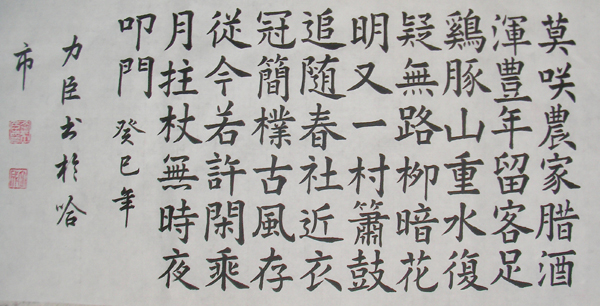 莫咲農家腊酒
渾豊年留客足
鷄豚山重水復
疑無路柳暗花
明又一村簫鼓
追随春社近衣
冠簡樸古風存
從今若許閑乘
月拄杖無時夜
叩門 癸巳年
力臣书於哈
市